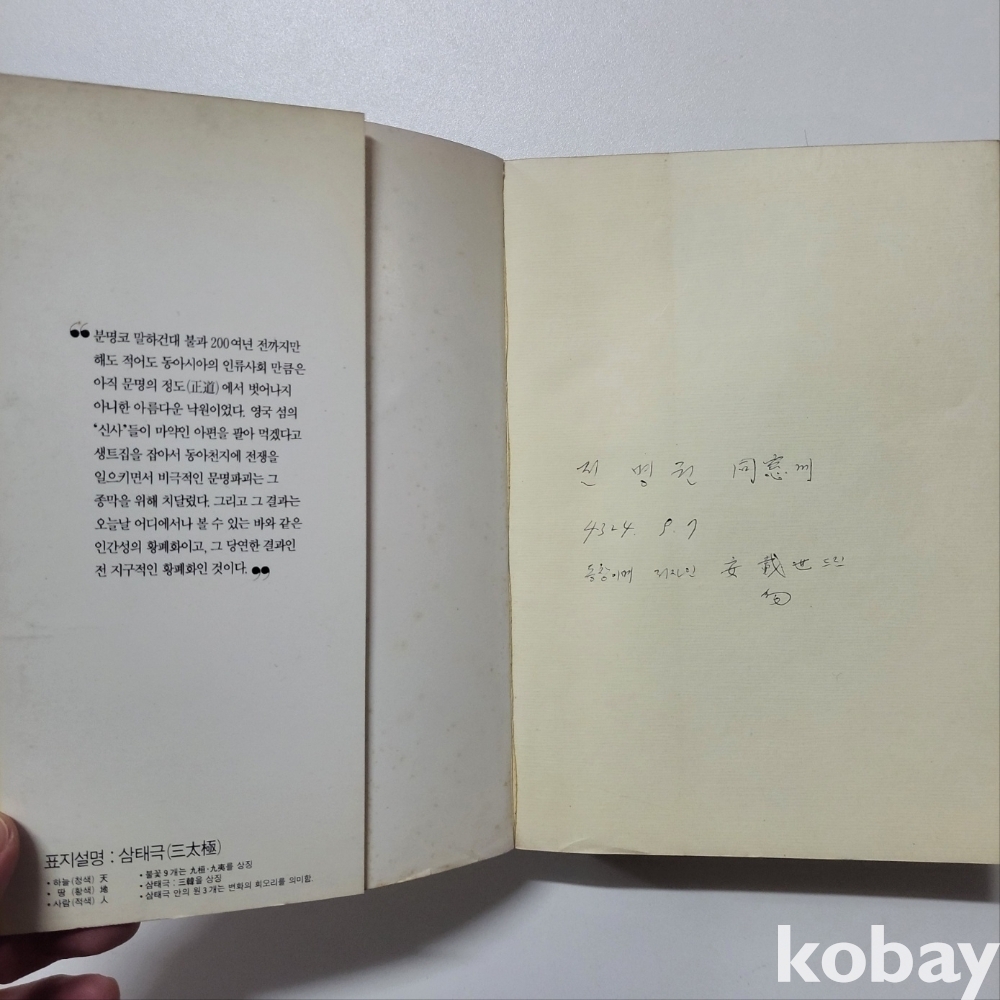 “ 분명코 말하건대 불과 200여년 전까지만
해도 적어도 동아시아의 인류사회 만큼은
아직 문명의 정도(正道)에서 벗어나지
아니한 아름다운 낙원이었다. 영국 섬의
“신사”들이 마약인 아편을 팔아 먹겠다고
생트집을 잡아서 동아천지에 전쟁을
일으키면서 비극적인 문명파괴는 그
종막을 위해 치달렸다. 그리고 그 결과는
오늘날 어디에서나 볼 수 있는 바와 같은
인간성의 황폐화이고, 그 당연한 결과인
전 지구적인 황폐화인 것이다. ”
표지설명 : 삼태극(三太極)
• 하늘(청색) 天
• 땅 (황색) 地
• 사람(적색) 人
• 불꽃 9개는 九桓·九夷를 상징
• 삼태극 : 三韓을 상징
• 삼태극 안의 원 3개는 변화의 회오리를 의미함.
전 병권 同窓께
4324. 9. 7
저자인 安 戴 世 드린
kobay